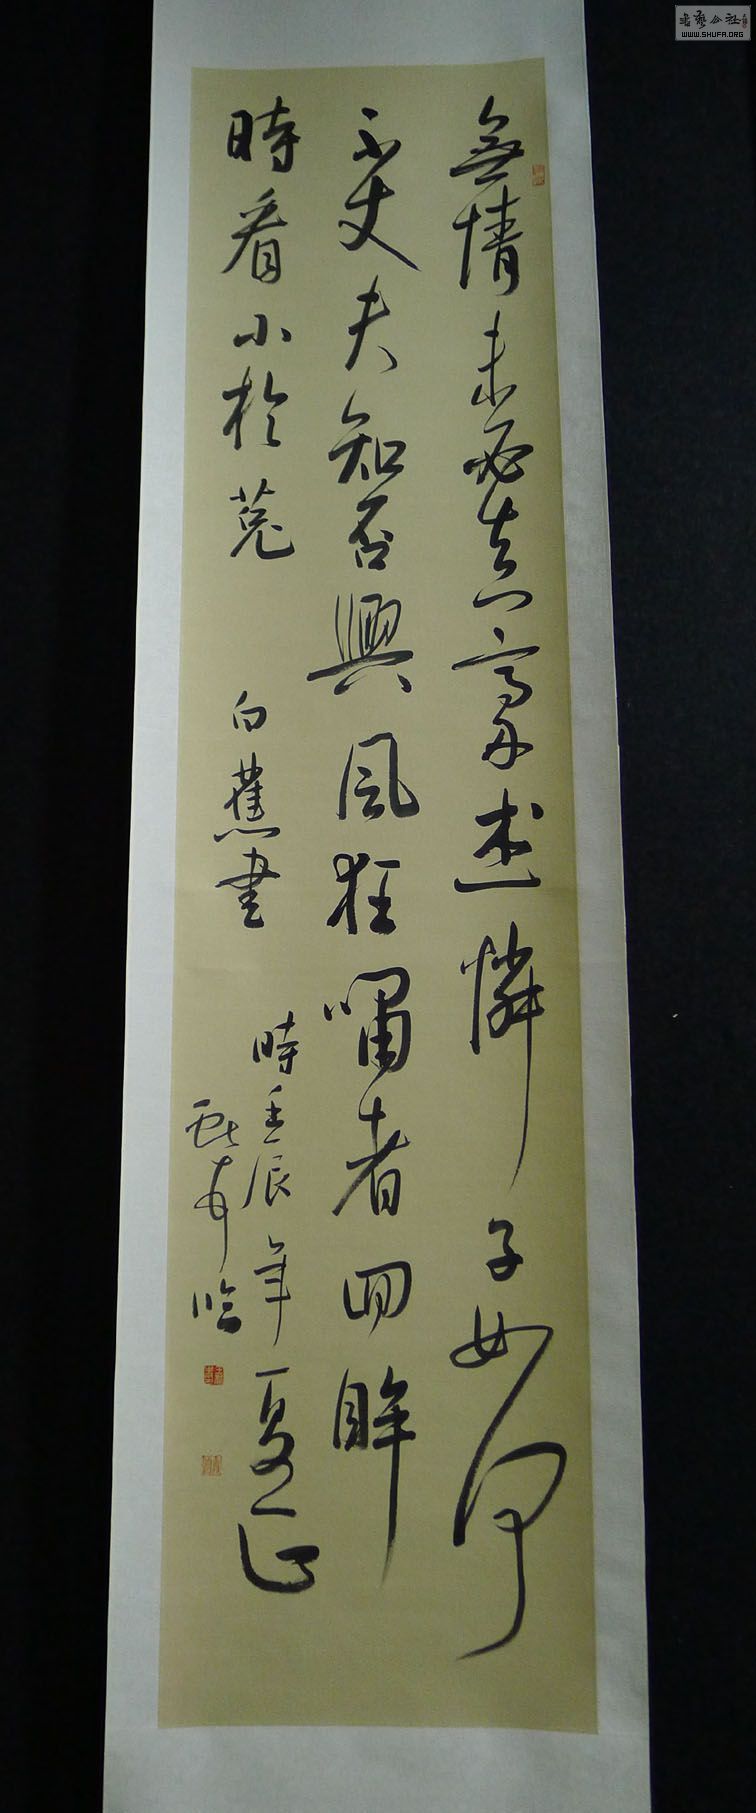 無情未必真豪杰憐子如何
不丈夫知否興風狂嘯者回眸
時看小於菟
白蕉書
時壬辰年夏正
書藝公社
WWW.SHUFA.ORG